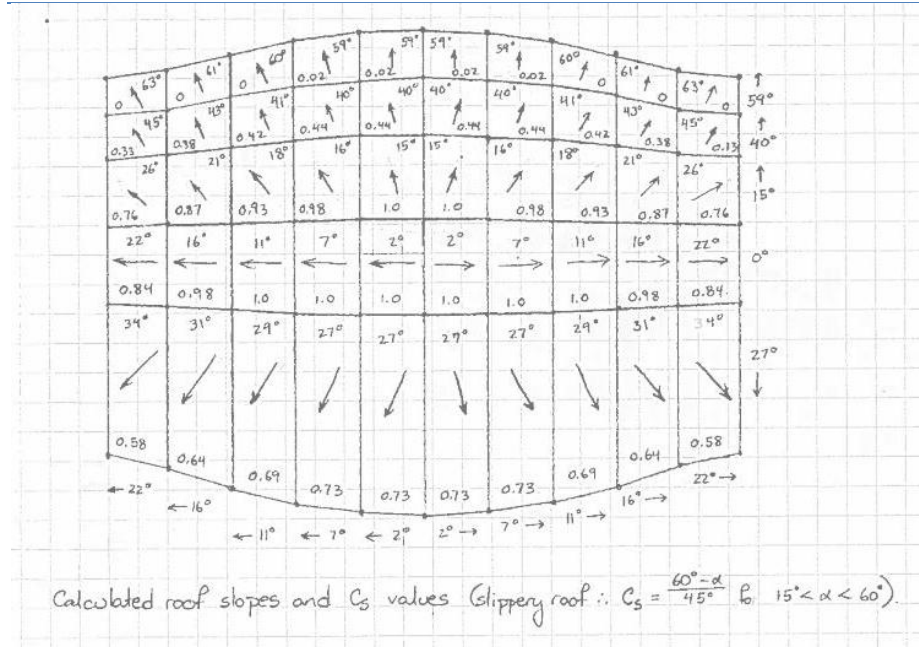 63° 61° 60° 59° 59° 59° 59° 60° 61° 63°
0 0 0 0.02 0.02 0.02 0.02 0 0 0 59°
45° 43° 41° 40° 40° 40° 40° 41° 43° 45°
0.33 0.38 0.42 0.44 0.44 0.44 0.44 0.42 0.38 0.13 40°
26° 21° 18° 16° 15° 15° 16° 18° 21° 26°
15°
0.76 0.87 0.93 0.98 1.0 1.0 0.98 0.93 0.87 0.76
22° 16° 11° 7° 2° 2° 7° 11° 16° 22°
0°
0.84 0.98 1.0 1.0 1.0 1.0 1.0 1.0 0.98 0.84
34° 31° 29° 27° 27° 27° 27° 29° 31° 34°
27°
0.58 0.64 0.69 0.73 0.73 0.73 0.73 0.69 0.64 0.58
← 22° ← 16° ← 11° ← 7° ← 2° 2° → 7° → 11° → 16° → 22° →
Calculated roof slopes and Cs values (slippery roof ∴ Cs = 60° - α / 45° for 15° < α < 60°).